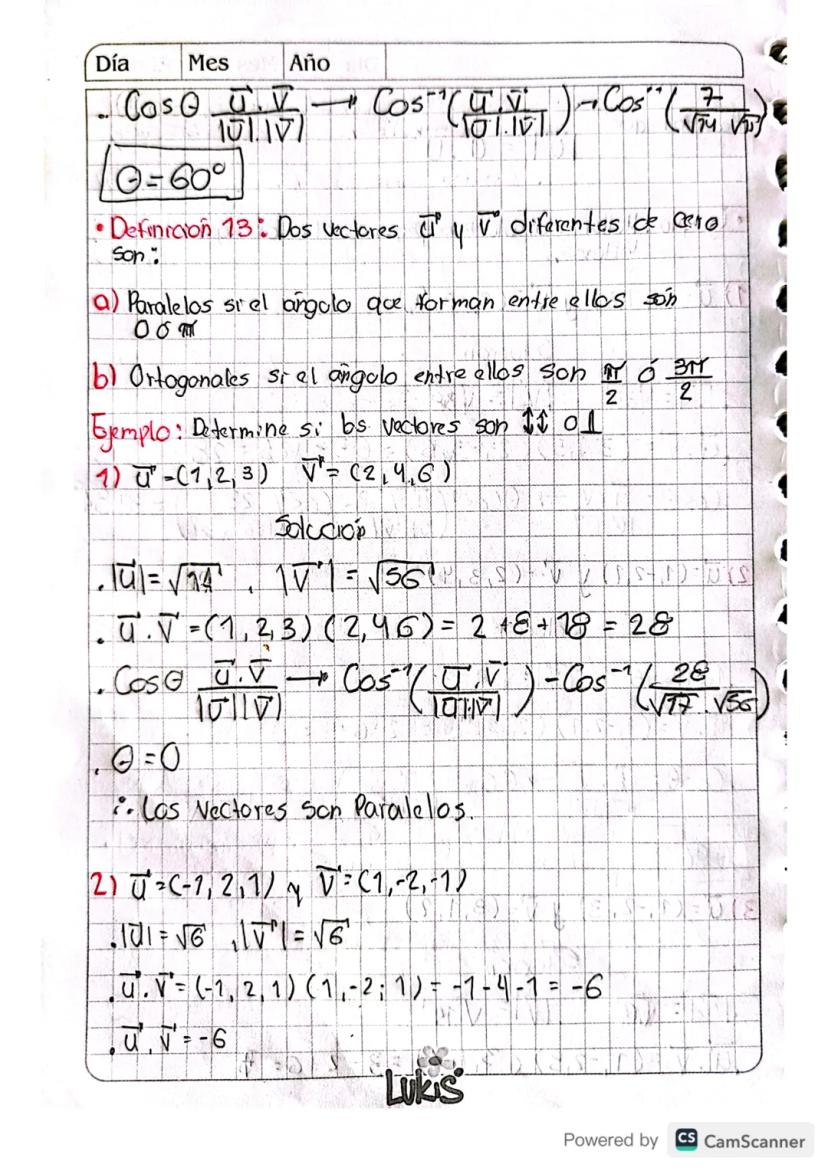 Día Mes Año
. Cosθ u⃗.v⃗/|u⃗|.|v⃗| → Cos⁻¹(u⃗.v⃗/|u⃗|.|v⃗|) → Cos⁻¹(7/√14 √14)
θ = 60°
• Definicion 13: Dos vectores u⃗ y v⃗ diferentes de cero
son:
a) Paralelos si el angolo que forman entre ellos son
0 ó π
b) Ortogonales si el angolo entre ellos son π/2 ó 3π/2
Ejemplo: Determine si los vectores son ⇅ o ⊥
1) u⃗ = (1,2,3) v⃗ = (2,4,6)
Solución
. |u⃗| = √14 , |v⃗| = √56
. u⃗.v⃗ = (1,2,3) (2,4 6) = 2 + 8 + 18 = 28
. Cosθ u⃗.v⃗/|u⃗||v⃗| → Cos⁻¹(u⃗.v⃗/|u⃗|.|v⃗|) - Cos⁻¹(28/√17 . √56)
. θ = 0
∴ Los Vectores son Paralelos.
2) u⃗ = (-1, 2, 1) y v⃗ = (1, -2, -1)
. |u⃗| = √6 , |v⃗| = √6
. u⃗.v⃗ = (-1, 2, 1) (1, -2; 1) = -1 - 4 - 1 = -6
. u⃗.v⃗ = -6
LUKIS
Powered by CS CamScanner